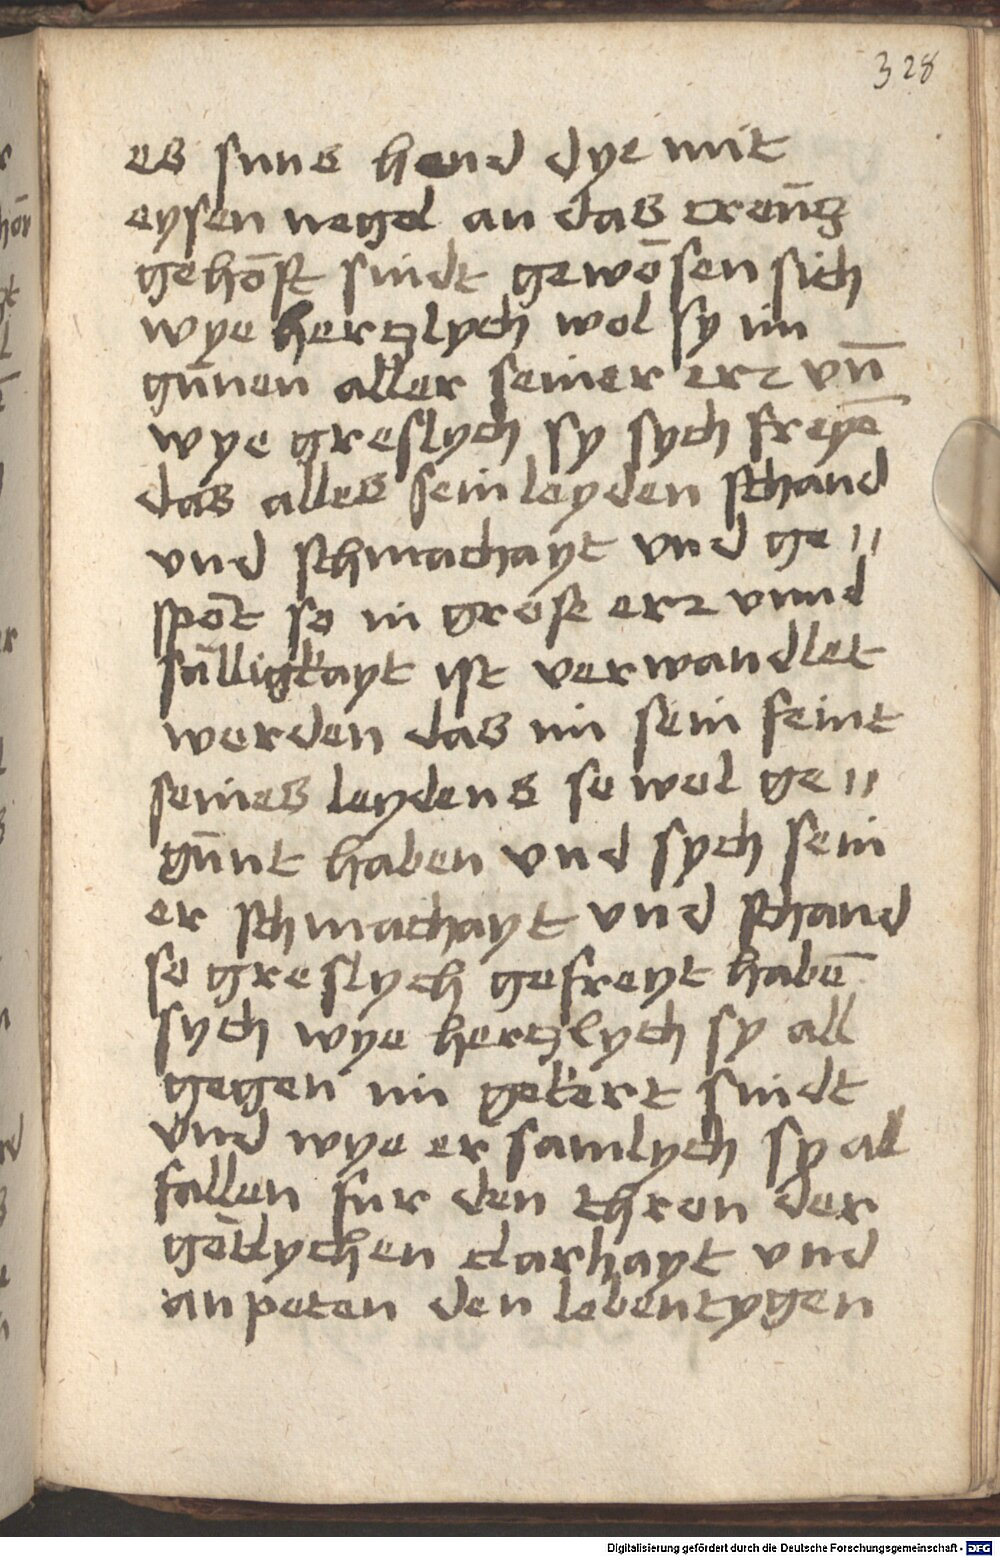 328
es suns hend dye mit
eysen negel an das creūtz
gehōft sindt gewōsen sich
wye hertzlych wol sy im
gūnen aller seiner erz vn̄
wye greslych sy sych freyē
das alles sein leyden schand
vnd schmachayt vnd ge〃
spōt so in grose erz vnnd
sālligkayt ist verwandlet
werden das im sein feint
seines leydens so wol ge〃
gūnt haben vnd sych sein
er schmachayt vnd schand
so greslych gefreyt habē
sych wye hertzlych sy all
gegen im gekert sindt
vnd wye er samlych sy al
fallen fur den thron der
gōtlychen clarhayt vnd
an peten den lebentygen
Digitalisierung gefördert durch die Deutsche Forschungsgemeinschaft - DFG